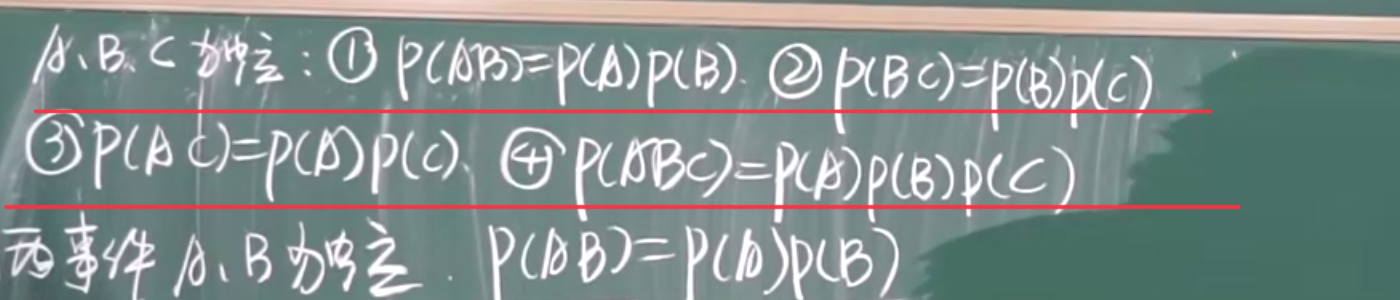 A、B、C 为独立:① P(AB)=P(A)P(B). ② P(BC)=P(B)P(C)
③ P(AC)=P(A)P(C)、④ P(ABC)=P(A)P(B)P(C)
两事件 A、B 为独立. P(AB)=P(A)P(B)